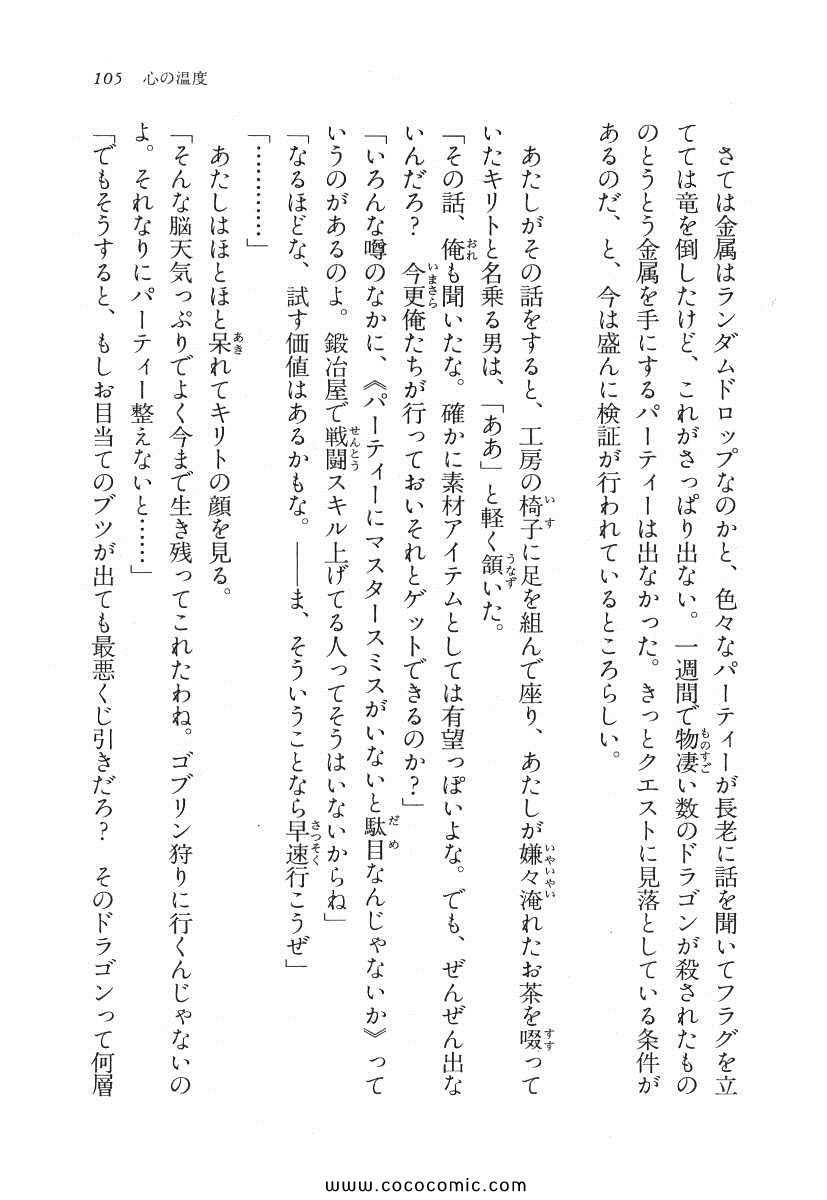 105 心の温度
さては金属はランダムドロップなのかと、色々なパーティーが長老に話を聞いてフラグを立
てては竜を倒したけど、これがさっぱり出ない。一週間で物凄い数のドラゴンが殺されたもの
のとうとう金属を手にするパーティーは出なかった。きっとクエストに見落としている条件が
あるのだ、と、今は盛んに検証が行われているところらしい。
あたしがその話をすると、工房の椅子に足を組んで座り、あたしが嫌々淹れたお茶を啜って
いたキリトと名乗る男は、「ああ」と軽く頷いた。
「その話、俺も聞いたな。確かに素材アイテムとしては有望っぽいよな。でも、ぜんぜん出な
いんだろ？　今更俺たちが行っておいそれとゲットできるのか？」
「いろんな噂のなかに、《パーティーにマスタースミスがいないと駄目なんじゃないか》って
いうのがあるのよ。鍛冶屋で戦闘スキル上げてる人ってそうはいないからね」
「なるほどな、試す価値はあるかもな。――ま、そういうことなら早速行こうぜ」
「…………」
あたしはほとほと呆れてキリトの顔を見る。
「そんな脳天気っぷりでよく今まで生き残ってこれたわね。ゴブリン狩りに行くんじゃないの
よ。それなりにパーティー整えないと……」
「でもそうすると、もしお目当てのブツが出ても最悪くじ引きだろ？　そのドラゴンって何層
www.cococomic.com